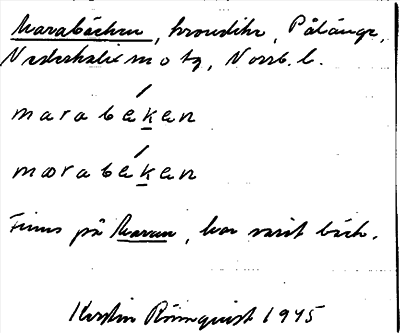 Marabäcken, krondike, Pålänge,
Nederkalix sn o tg, Norrb. l.
marabekan
mærabekan
Finns på Maran, har varit bäck.
Kerstin Rönnquist 1945